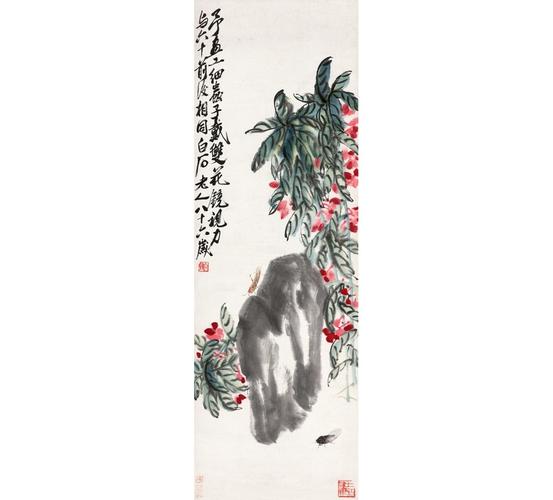 予畫工細蟲子戴雙花鏡視力
与六十前後相同白石老人八十六歲